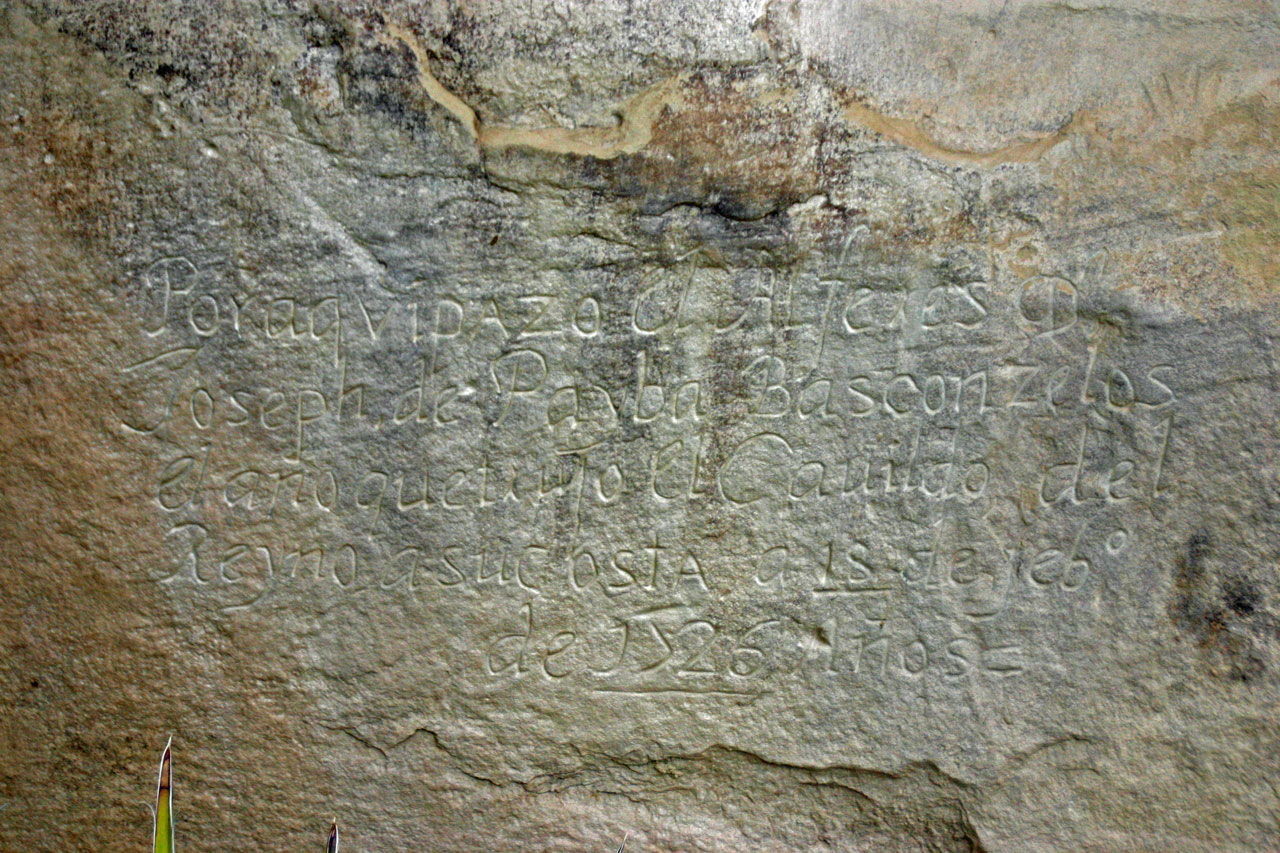 Por aqvi pazo el Alferes Dn
Joseph de Payba Basconzelos
el año que trujo el Cauildo del
Reyno a su costa a 18 de febo
de 1526 Años =